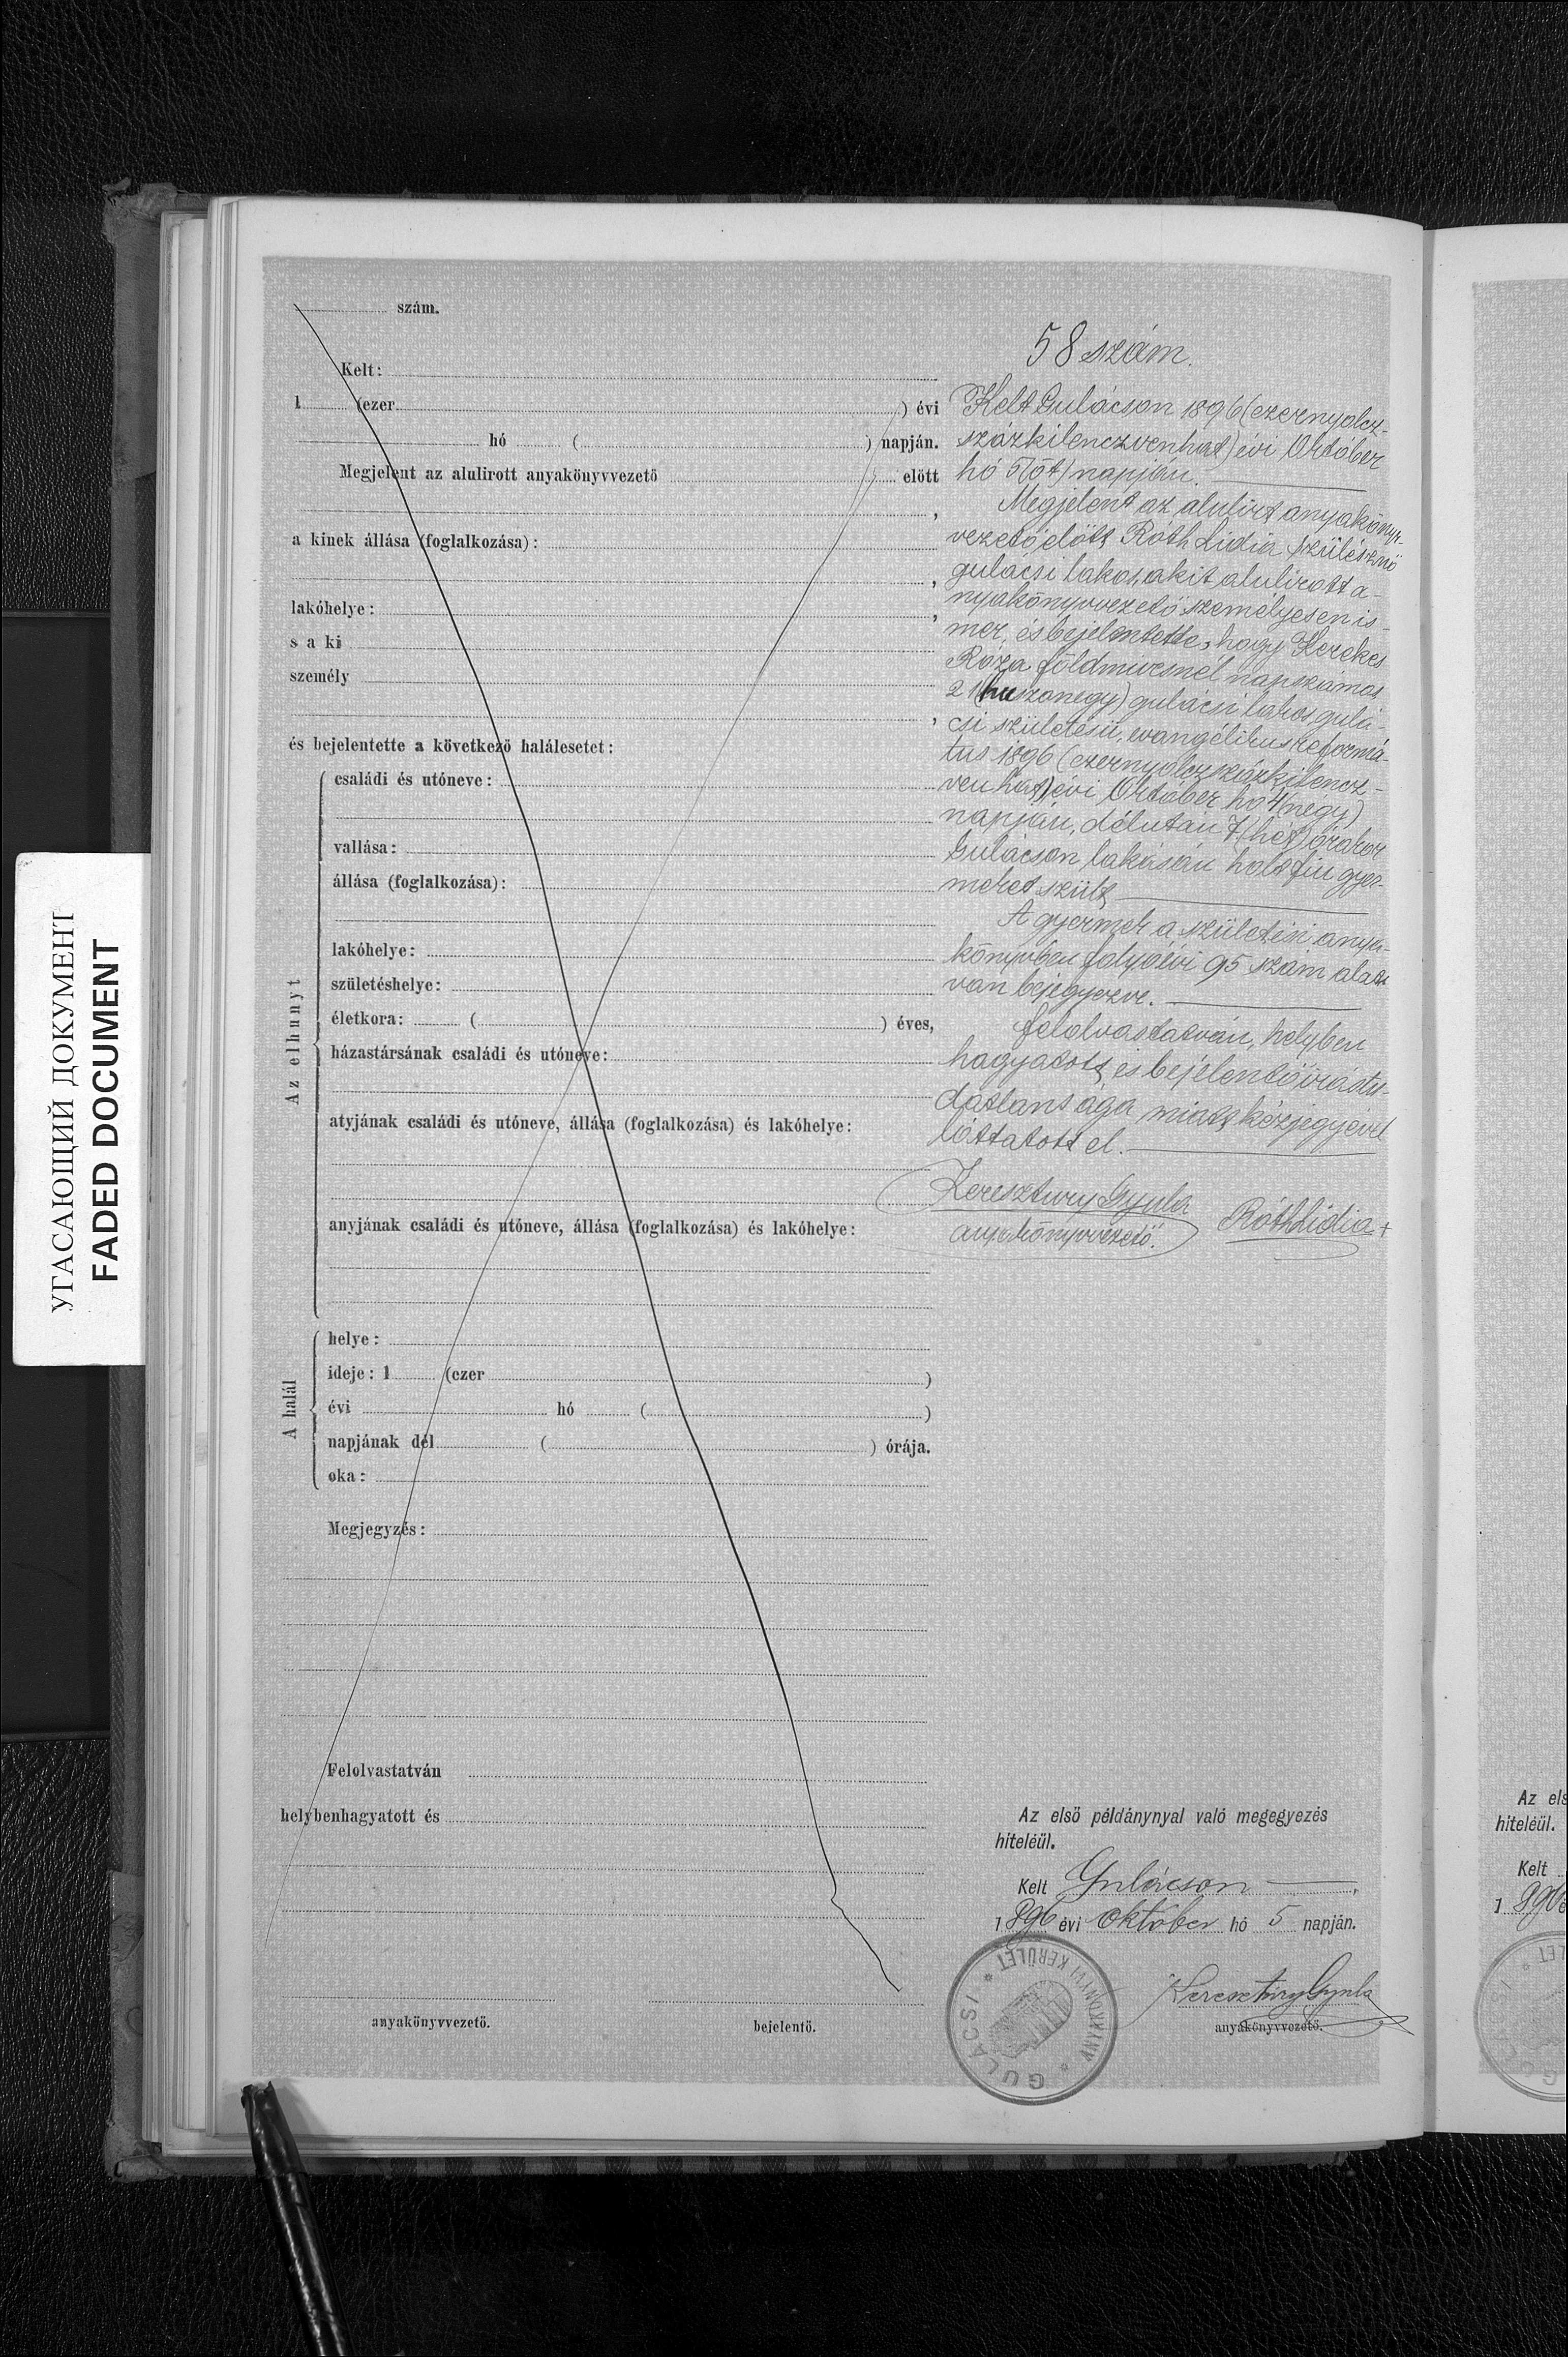 szám.
Kelt:
1 (ezer ) évi
hó ( ) napján.
Megjelent az alulirott anyakönyvvezető előtt
,
a kinek állása (foglalkozása):
,
lakóhelye: ,
s a ki
személy
,
és bejelentette a következő halálesetet:
Az elhunyt
családi és utóneve:
vallása:
állása (foglalkozása):
lakóhelye:
születéshelye:
életkora: ( ) éves,
házastársának családi és utóneve:
atyjának családi és utóneve, állása (foglalkozása) és lakóhelye:
anyjának családi és utóneve, állása (foglalkozása) és lakóhelye:
A halál
helye:
ideje: 1 (ezer )
évi hó ( )
napjának dél ( ) órája.
oka:
Megjegyzés:
Felolvastatván
helybenhagyatott és
anyakönyvvezető.
bejelentő.
58 szám.
Kelt Gulácson 1896 (ezernyolcz-
százkilenczvenhat) évi Október
hó 5 (öt) napján.
Megjelent az alulirt anyakönyv-
vezető előtt Róth Lidia szülésznő
gulácsi lakos, akit alulirott a-
nyakönyvvezető személyesen is-
mer, és bejelentette, hogy Kerekes
Róza földmivesnél napszámos
21 (huszonegy) gulácsi lakos, gulá-
csi születésü, evangélikus reformá-
tus 1896 (ezernyolczszázkilencz-
venhat) évi Október hó 4 (négy)
napján, délután 7 (hét) órakor
Gulácson, lakásán holt fiu gyer-
meket szült
A gyermek a születési anya-
könyvben folyó évi 95 szám alatt
van bejegyezve.
Felolvastatván, helyben
hagyatott, es bejelentő irástu-
datlansága miatt kézjegyével
láttatott el.
Keresztury Gyula
anyakönyvvezető.
Róth Lidia +
Az első példánynyal való megegyezés
hiteléül.
Kelt Gulácson ,
1896 évi október hó 5 napján.
Keresztúry Gyula
anyakönyvvezető.
GULÁCSI * ANYAKÖNYVI KERÜLET *
УГАСАЮЩИЙ ДОКУМЕНТ
FADED DOCUMENT
Az els
hiteléül.
Kelt
1 896 é